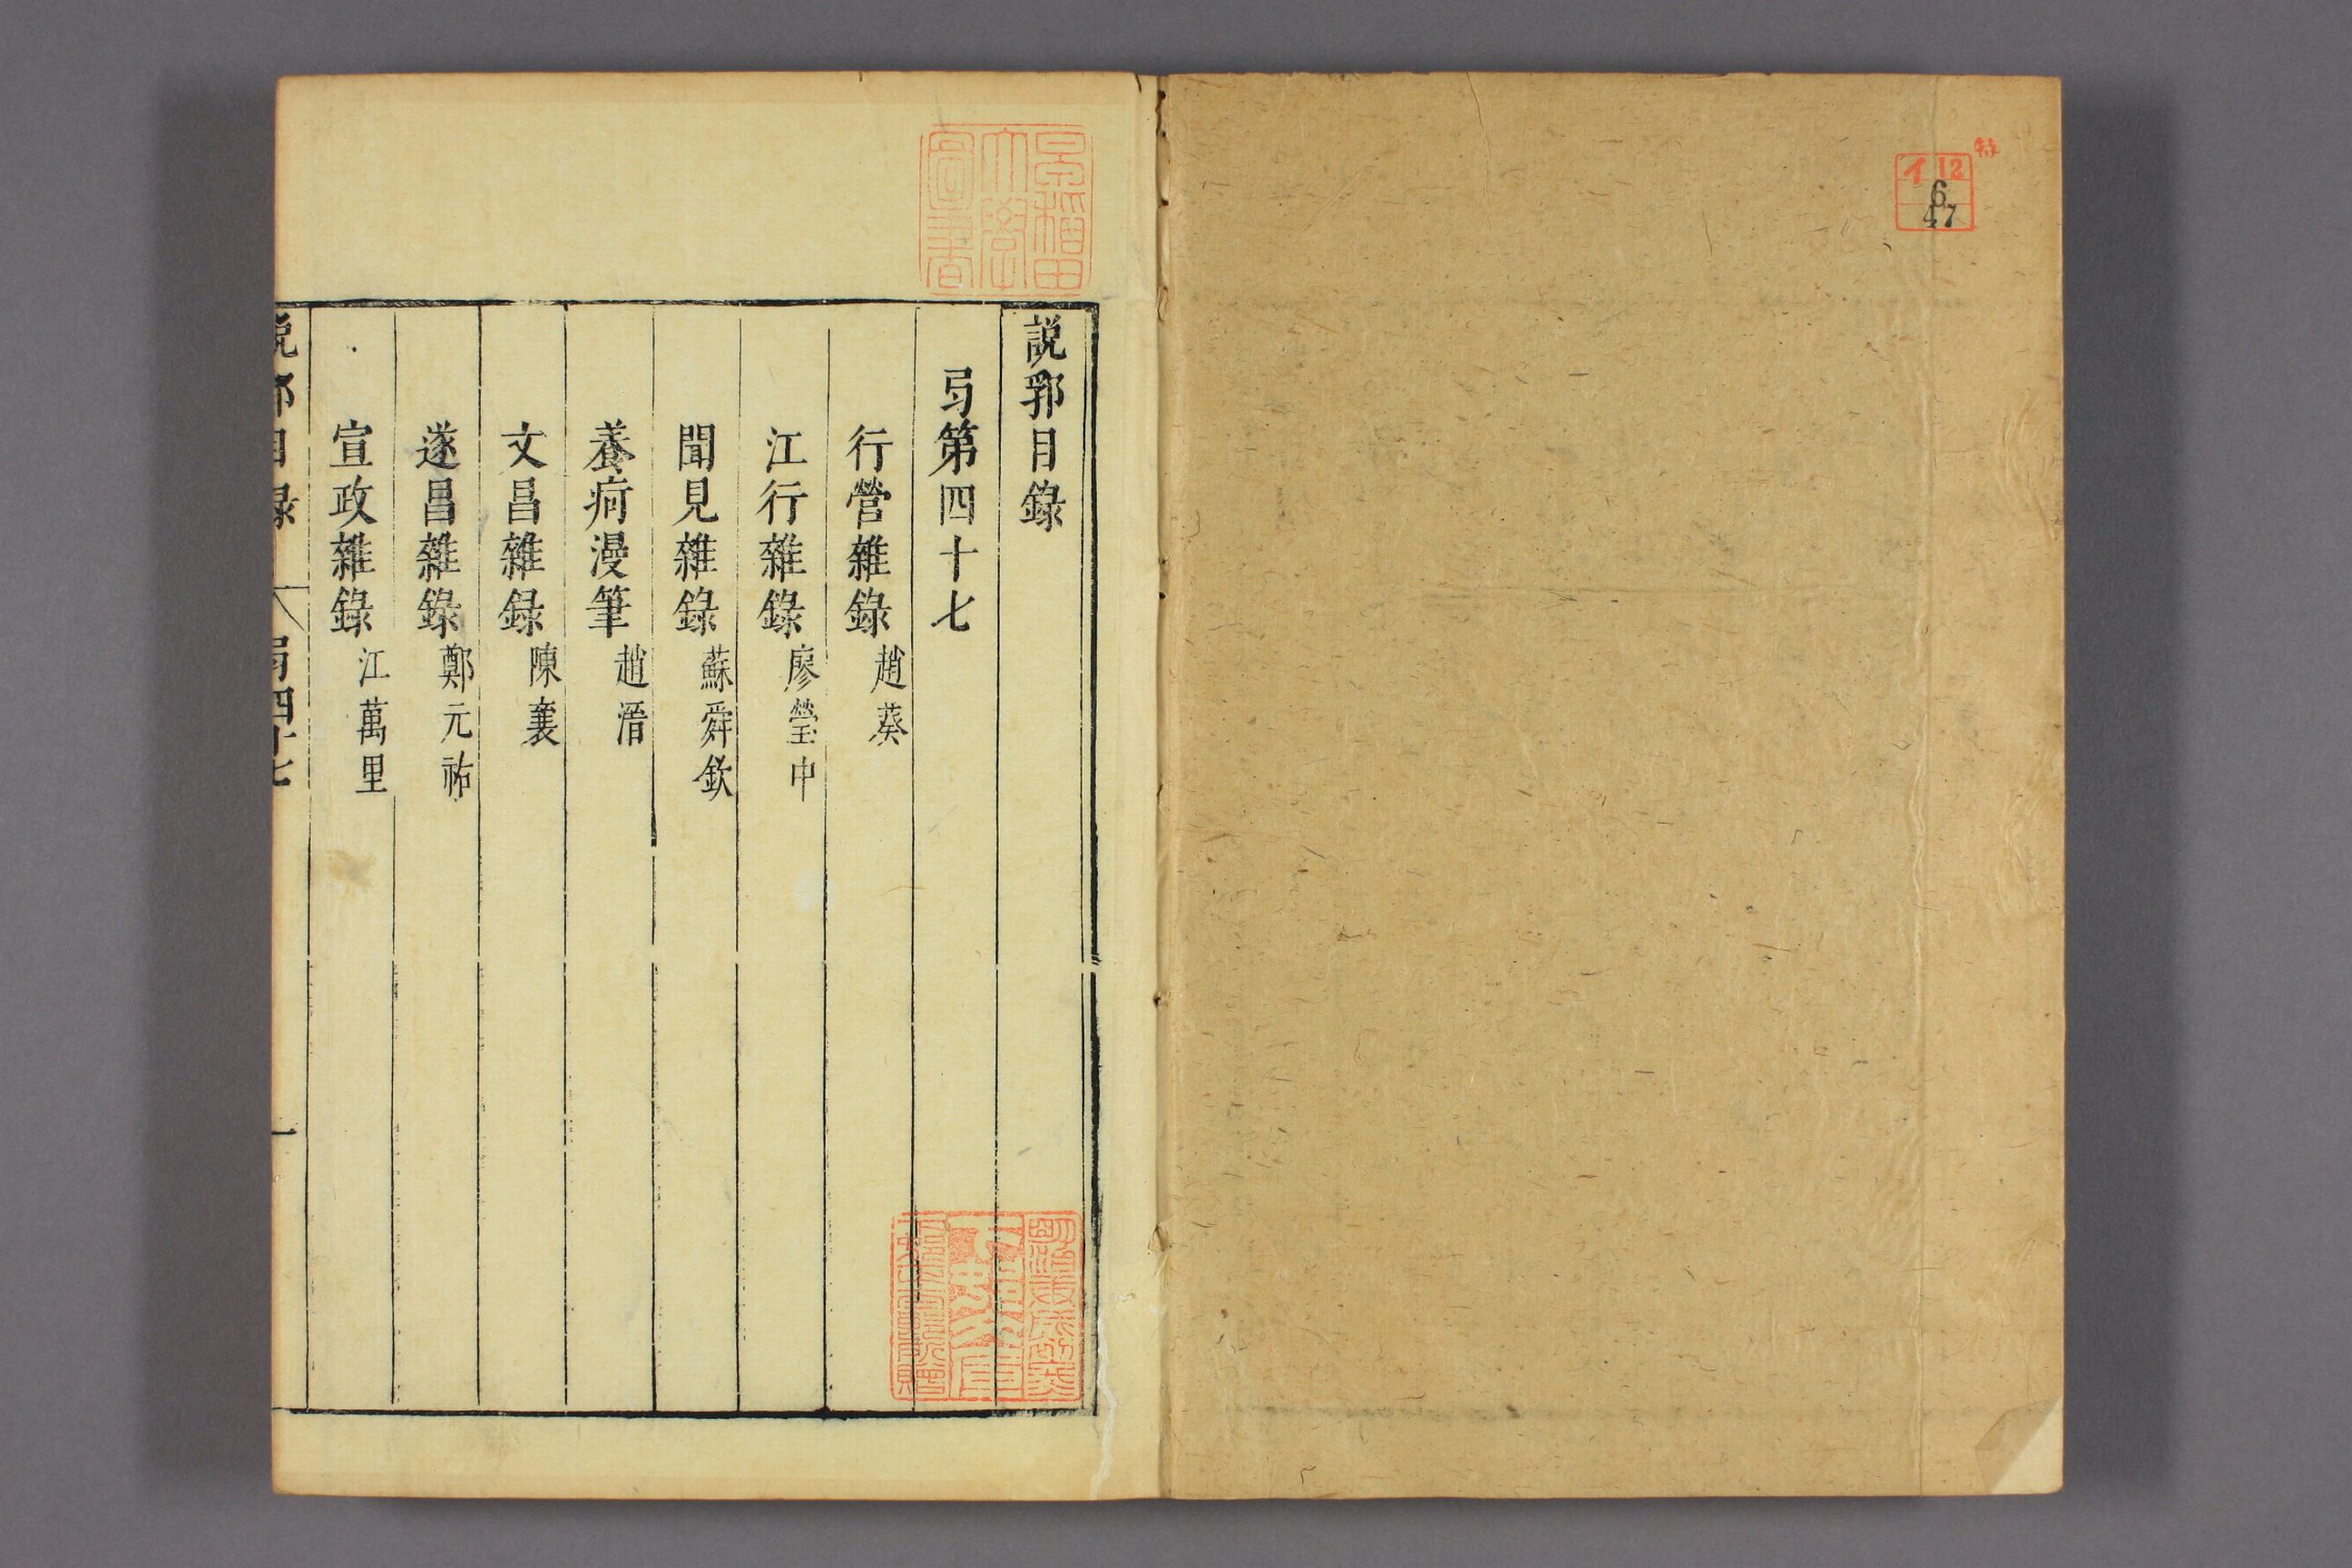 特
イ 12
6
47
早稲田
大學
圖書
説郛目錄
弓第四十七
行營雜錄 趙葵
江行雜錄 廖瑩中
聞見雜錄 蘇舜欽
養痾漫筆 趙溍
文昌雜録 陳襄
遂昌雜錄 鄭元祐
宣政雜錄 江萬里
説郛目録 弓四十七 一